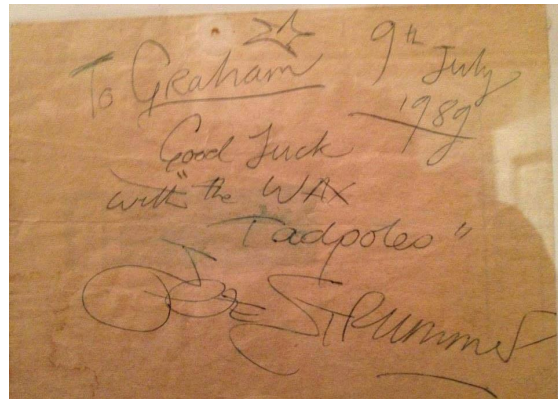 To Graham
9th July
1989
Good Luck
with "the WAX
Tadpoles"
Joe Strummer